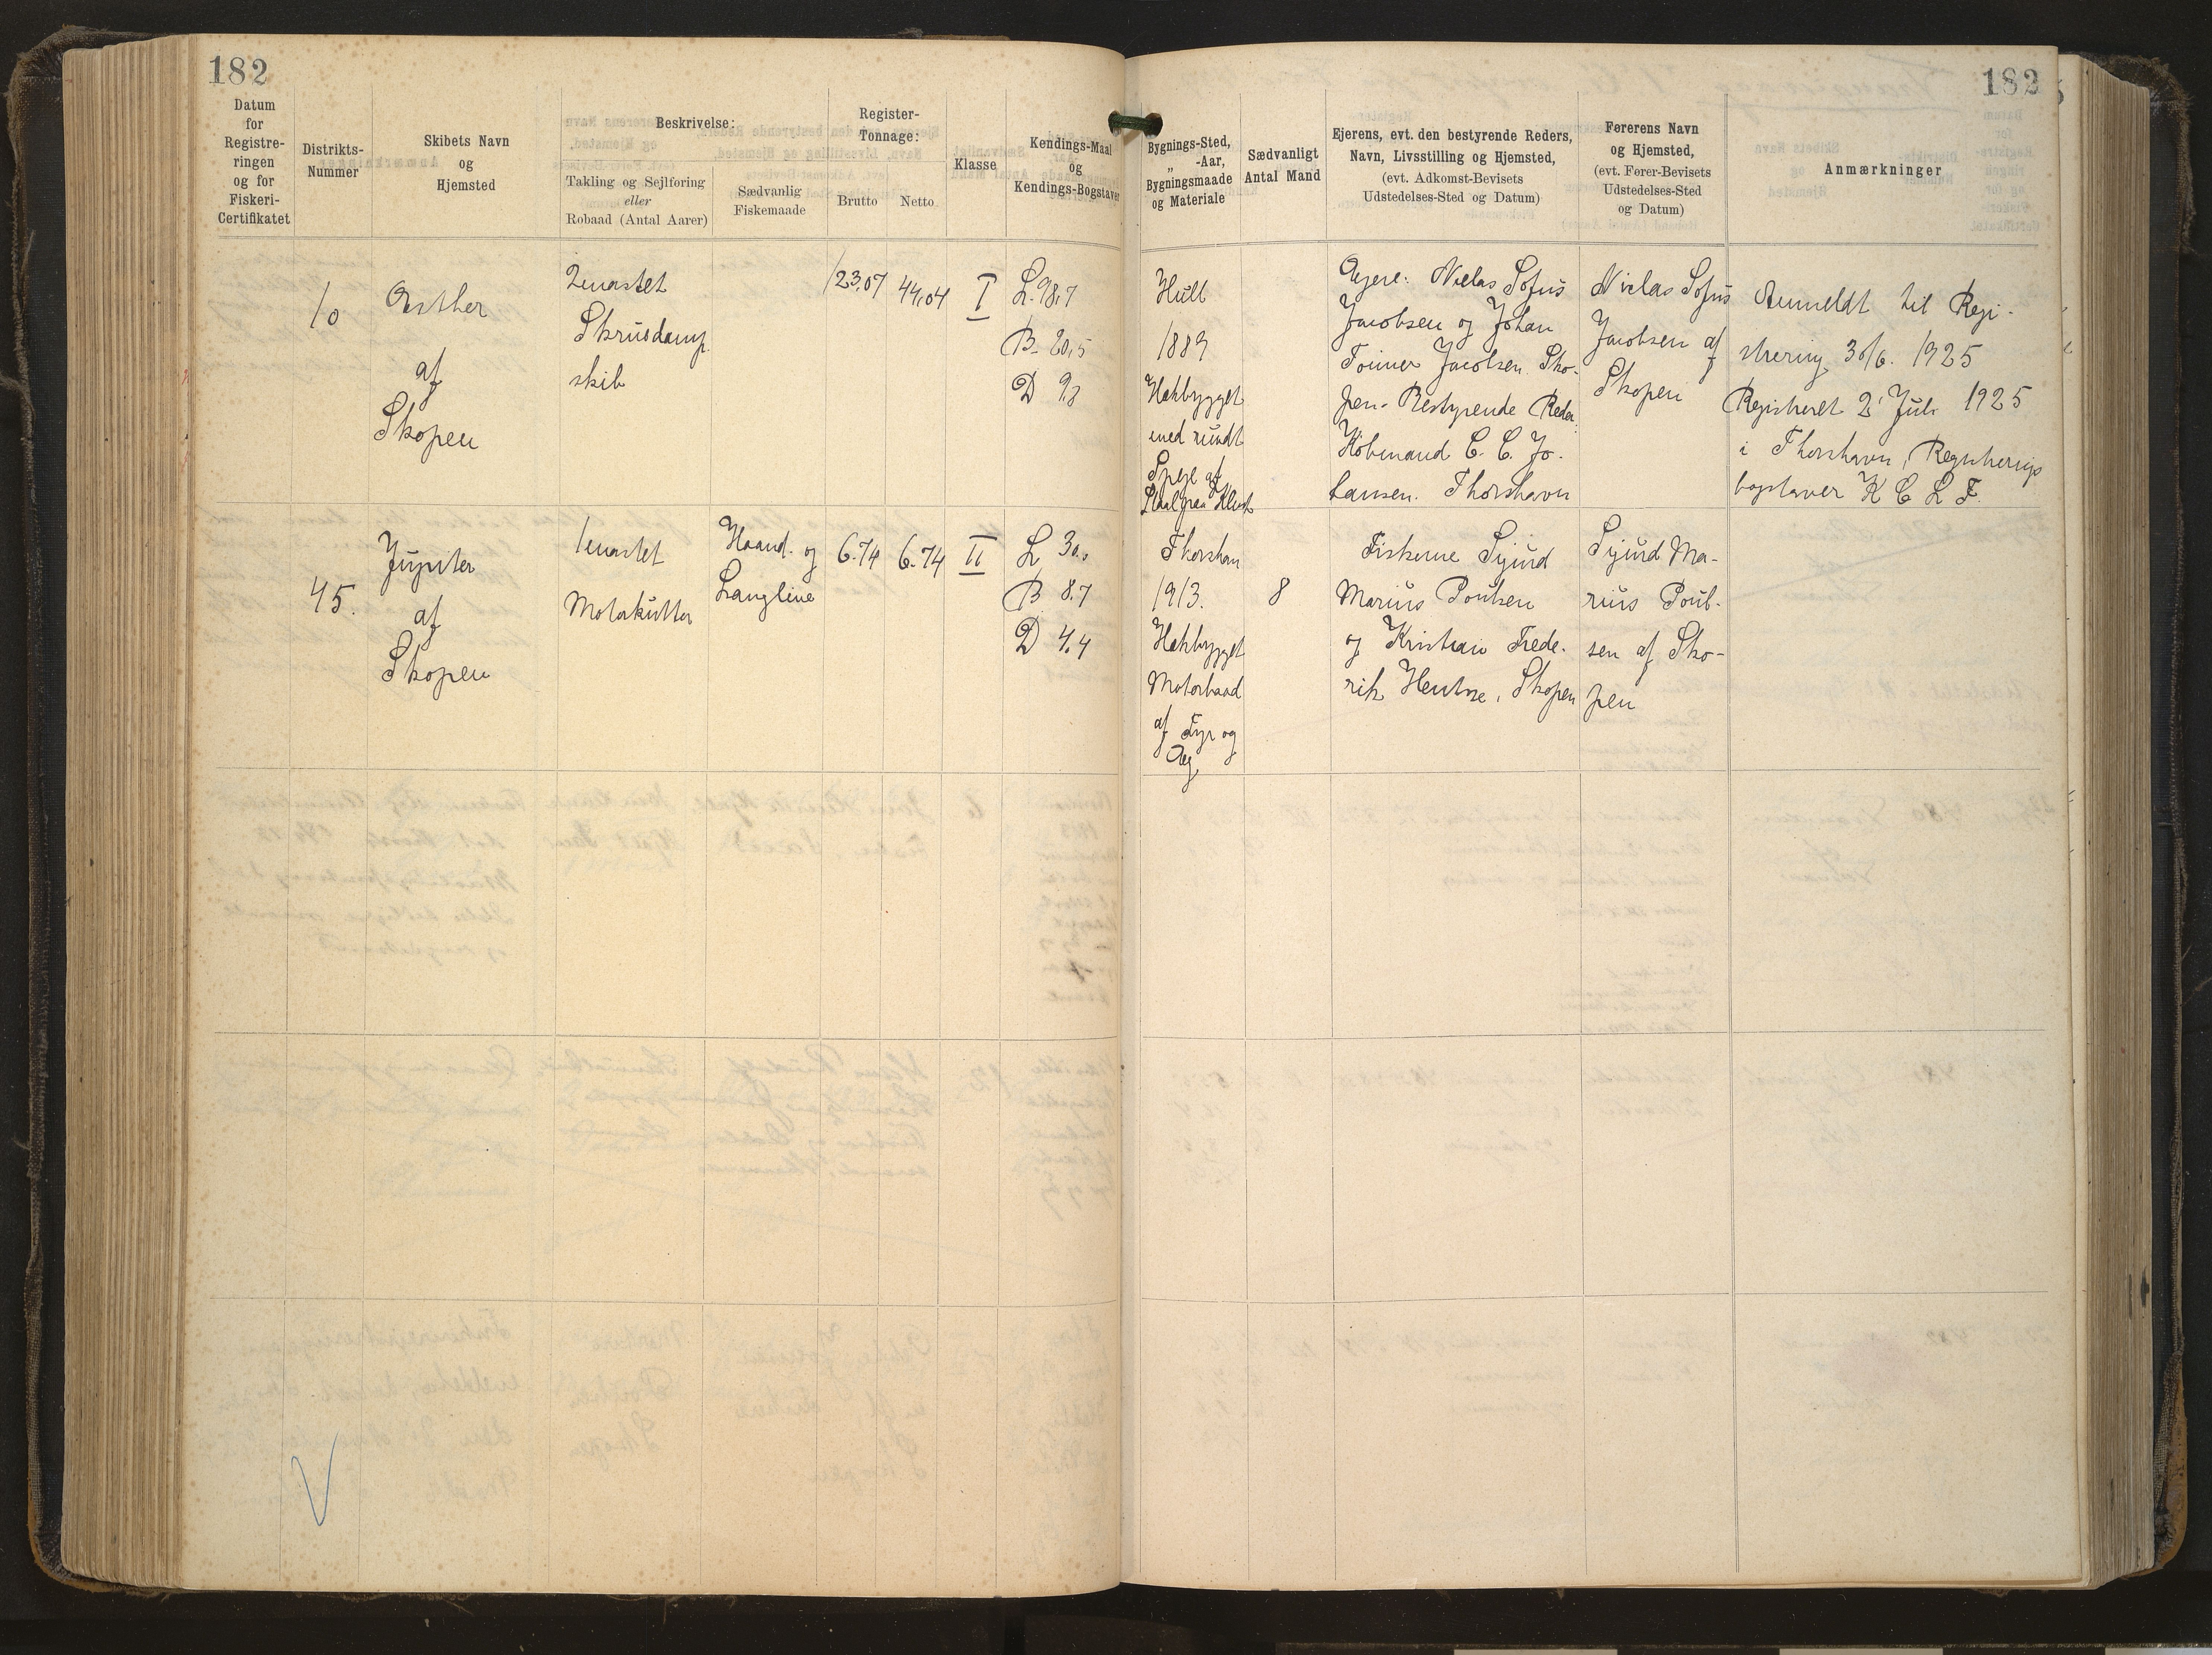 182
182
Datum
for
Registre-
ringen
og for
Fiskeri-
Certifikatet
Distrikts-
Nummer
Skibets Navn
og
Hjemsted
Beskrivelse:
Takling og Sejlføring
eller
Robaad (Antal Aarer)
Sædvanlig
Fiskemaade
Register-
Tonnage:
Brutto
Netto
Klasse
Kendings-Maal
og
Kendings-Bogstaver
Bygnings-Sted,
„ -Aar,
Bygningsmaade
og Materiale
Sædvanligt
Antal Mand
Ejerens, evt. den bestyrende Reders,
Navn, Livsstilling og Hjemsted,
(evt. Adkomst-Bevisets
Udstedelses-Sted og Datum)
Førerens Navn
og Hjemsted,
(evt. Fører-Bevisets
Udstedelses-Sted
og Datum)
Anmærkninger
10
Esther
af
Skopen
2mastet
Skruedamp
skib
123,07
44,04
I
L. 98,7
B. 20,5
D 9,8
Hull
1889
Hekbygget
med rundt
Spejl af
Staal paa Klink
Ejere: Niclas Sofus
Jacobsen og Johan
Joiner Jacobsen. Sko-
pen. Bestyrende Reder:
Köbmand C. C. Jo-
hansen. Thorshavn
Niclas Sofus
Jacobsen af
Skopen
Anmeldt til Regi-
strering 30/6. 1925
Registreret 2' Juli 1925
i Thorshavn, Registrerings
bogstaver K C L F.
45.
Jupiter
af
Skopen
1mastet
Motorkutter
Haand- og
Langline
6.74
6.74
II
L 30,
B 8.7
D 4.4
Thorshavn
1913.
Hekbygget
Motorbaad
af Fyr og
Eg
8
Fiskerne Sjurd
Marius Poulsen
og Kristian Frede-
rik Hentze, Skopen
Sjurd Ma-
rius Poul-
sen af Sko-
pen